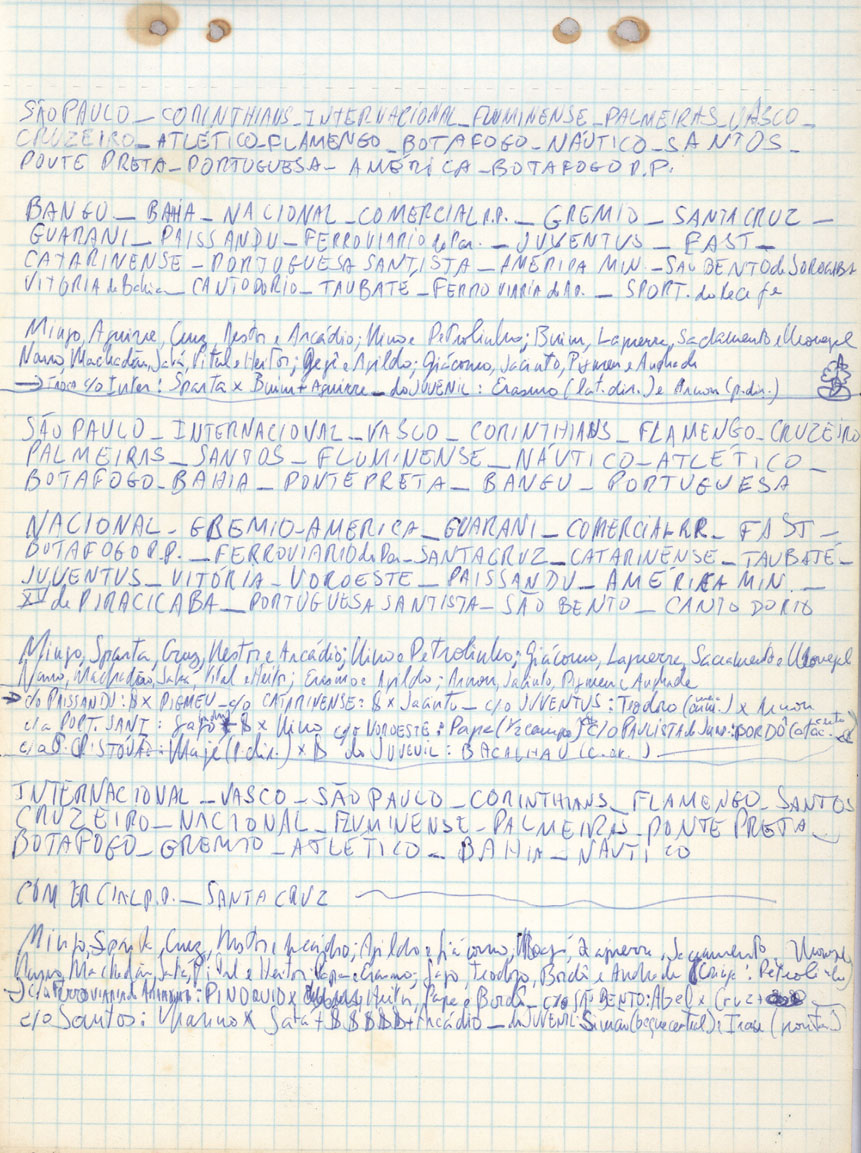 SÃO PAULO – CORINTHIANS – INTERNACIONAL – FLUMINENSE – PALMEIRAS – VASCO –
CRUZEIRO – ATLÉTICO – FLAMENGO – BOTAFOGO – NÁUTICO – SANTOS –
PONTE PRETA – PORTUGUESA – AMÉRICA – BOTAFOGO R.P.
BANGU – BAHIA – NACIONAL – COMERCIAL R.P. – GREMIO – SANTA CRUZ –
GUARANI – PAISSANDU – FERROVIARIO do Par. – JUVENTUS – FAST –
CATARINENSE – PORTUGUESA SANTISTA – AMÉRICA MIN. – SÃO BENTO de SOROCABA
VITÓRIA da Bahia – CANTO DO RIO – TAUBATÉ – FERROVIARIA de Ar. – SPORT. do Recife
Mingo, Aguirre, Cruz, Nestor e Arcádio; Nino e Petrolinho; Buim, Laguerre, Sacramento e
Nano, Machadão, Satá, Vital e Heitor; e Apildo; Giácomo, Jacinto, Pigmeu e Andrade
→ Troca c/o Inter: Sparta x Buim + Aguirre – do JUVENIL: Erasmo (lat. dir.) e Arnon (p. dir.)
SÃO PAULO – INTERNACIONAL – VASCO – CORINTHIANS – FLAMENGO – CRUZEIRO
PALMEIRAS – SANTOS – FLUMINENSE – NÁUTICO – ATLÉTICO –
BOTAFOGO – BAHIA – PONTE PRETA – BANGU – PORTUGUESA
NACIONAL – GREMIO – AMERICA – GUARANI – COMERCIAL R.P. – FAST –
BOTAFOGO R.P. – FERROVIARIO do Par – SANTA CRUZ – CATARINENSE – TAUBATÉ –
JUVENTUS – VITÓRIA – NOROESTE – PAISSANDU – AMÉRICA MIN. –
XV de PIRACICABA – PORTUGUESA SANTISTA – SÃO BENTO – CANTO DO RIO
Mingo, Sparta, Cruz, Nestor e Arcádio; Nino e Petrolinho; Giácomo, Laguerre, Sacramento e
Nano, Machadão, Satá, Vital e Heitor; Erasmo e Apildo; Arnon, Jacinto, Pigmeu e Andrade
→ c/o PAISSANDU: $ x PIGMEU – c/o CATARINENSE: $ x Jacinto – c/o JUVENTUS: Teodoro x Arnon
c/a PORT. SANT: $ x Nino c/o NOROESTE: Pape (½ campo) c/o PAULISTA de Jun.: BORDÔ
c/o S. CRISTOVÃO: (p. dir.) x $ do JUVENIL: BACALHAU
INTERNACIONAL – VASCO – SÃO PAULO – CORINTHIANS – FLAMENGO – SANTOS
CRUZEIRO – NACIONAL – FLUMINENSE – PALMEIRAS – PONTE PRETA –
BOTAFOGO – GREMIO – ATLÉTICO – BAHIA – NÁUTICO
COMERCIAL R.P. – SANTA CRUZ
Mingo, Sparta, Cruz, Nestor e Arcádio; Apildo e Giácomo; Laguerre, Sacramento
Nano, Machadão, Satá, Vital e Heitor; Pape e Erasmo; Teodoro, Bordô e Andrade
→ c/a Ferroviaria de Araraquara: x Heitor, Pape e Bordô – c/o S. BENTO: Abel x Cruz +
c/o Santos: x Satá + $$$$$ + Arcádio – do JUVENIL: Simão (beque central);